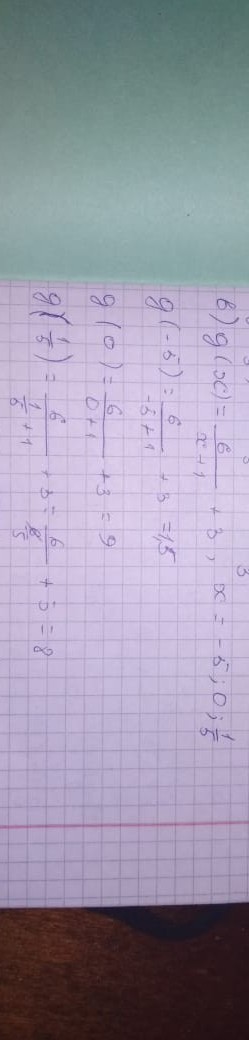 в) g(x) = 6/(x+1) + 3, x = -5; 0; 1/5
g(-5) = 6/(-5+1) + 3 = 1,5
g(0) = 6/(0+1) + 3 = 9
g(1/5) = 6/(1/5+1) + 3 = 6/(6/5) + 3 = 8